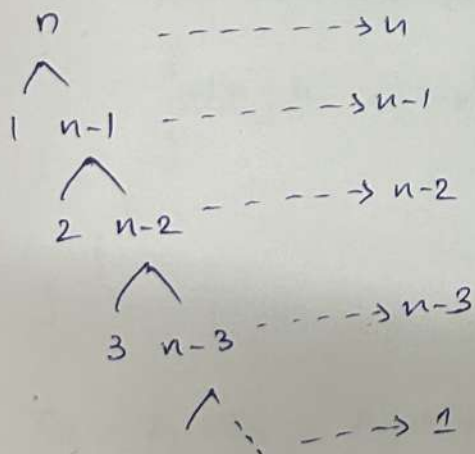 n -------> n
1 n-1 -------> n-1
2 n-2 -----> n-2
3 n-3 -----> n-3
---> 1